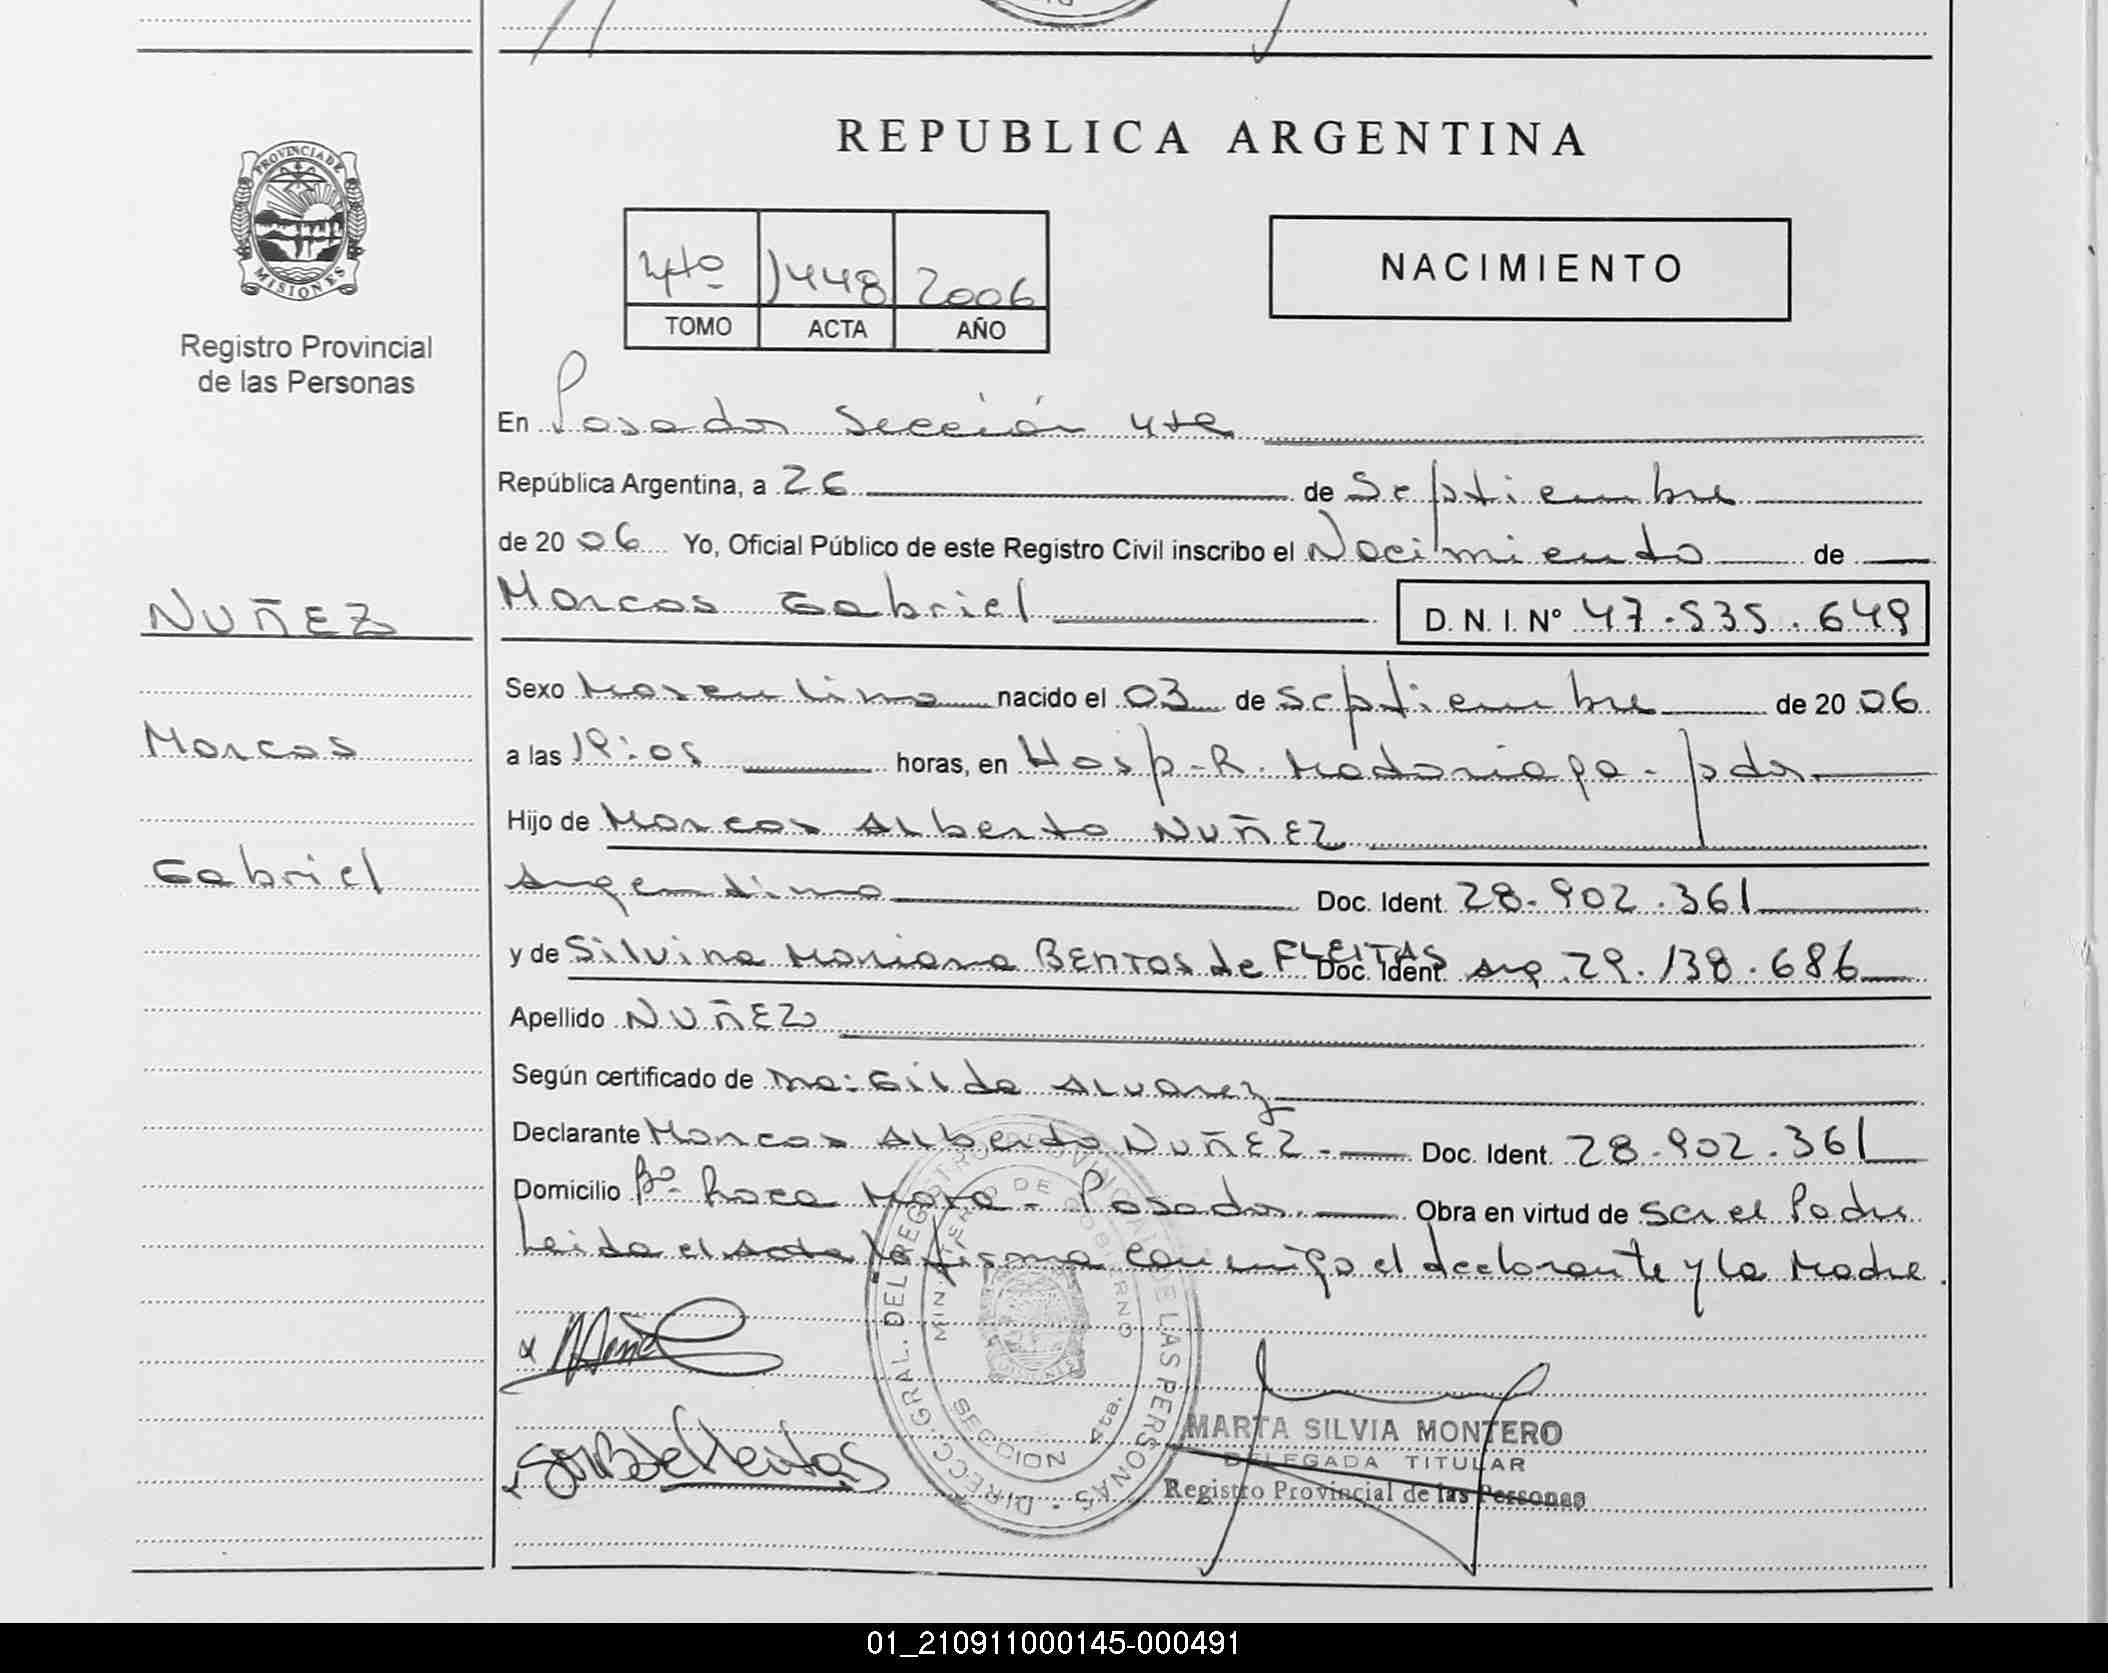 REPUBLICA ARGENTINA
PROVINCIA DE
MISIONES
Registro Provincial
de las Personas
4to 1448 2006
TOMO ACTA AÑO
NACIMIENTO
En Posadas Sección 4ta
República Argentina, a 26 de Septiembre
de 2006 Yo, Oficial Público de este Registro Civil inscribo el Nacimiento de
Marcos Gabriel D. N. I. Nº 47.535.649
NUÑEZ
Marcos
Gabriel
Sexo Masculino nacido el 03 de Septiembre de 2006
a las 19:05 horas, en Hosp. R. Madariaga - pdas
Hijo de Marcos Alberto NUÑEZ
Argentino Doc. Ident. 28.902.361
y de Silvina Mariana BENTOS de FLEITAS Doc. Ident. arg. 29.138.686
Apellido NUÑEZ
Según certificado de Ma: Gilda Alvarez
Declarante Marcos Alberto NUÑEZ - Doc. Ident. 28.902.361
Domicilio Bº Roca Mora - Posadas. Obra en virtud de ser el Padre
Leida el acta la firma conmigo el declarante y la Madre.
DIRECC. GRAL. DEL REGISTRO PROVINCIAL DE LAS PERSONAS
MINISTERIO DE GOBIERNO
SECCION 4ta.
MARTA SILVIA MONTERO
DELEGADA TITULAR
Registro Provincial de las Personas
01_210911000145-000491